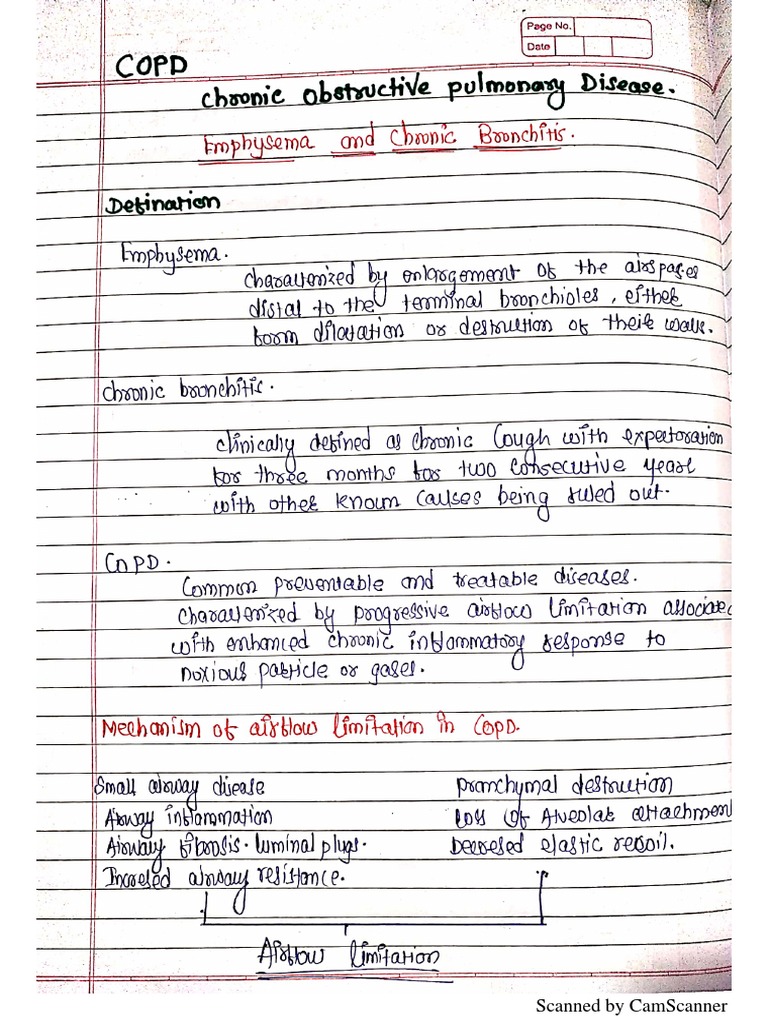 Page No.
Date
COPD
Chronic obstructive pulmonary Disease.
Emphysema and Chronic Bronchitis.
Defination
Emphysema.
characterized by enlargement of the airspaces
distal to the terminal bronchioles, either
form dilatation or destruction of their walls.
chronic bronchitis.
clinically defined as chronic Cough with expectoration
for three months for two consecutive years
with other known causes being ruled out.
COPD.
Common preventable and treatable diseases.
characterized by progressive airflow limitation associated
with enhanced chronic inflammatory response to
noxious particle or gases.
Mechanism of airflow limitation in COPD.
Small airway disease Pranchymal destruction
Airway inflammation Loss Of Alveolar attachment
Airway fibrosis. luminal plugs. Decresed elastic recoil.
Incresed airway resistance.
Airflow limitation
Scanned by CamScanner